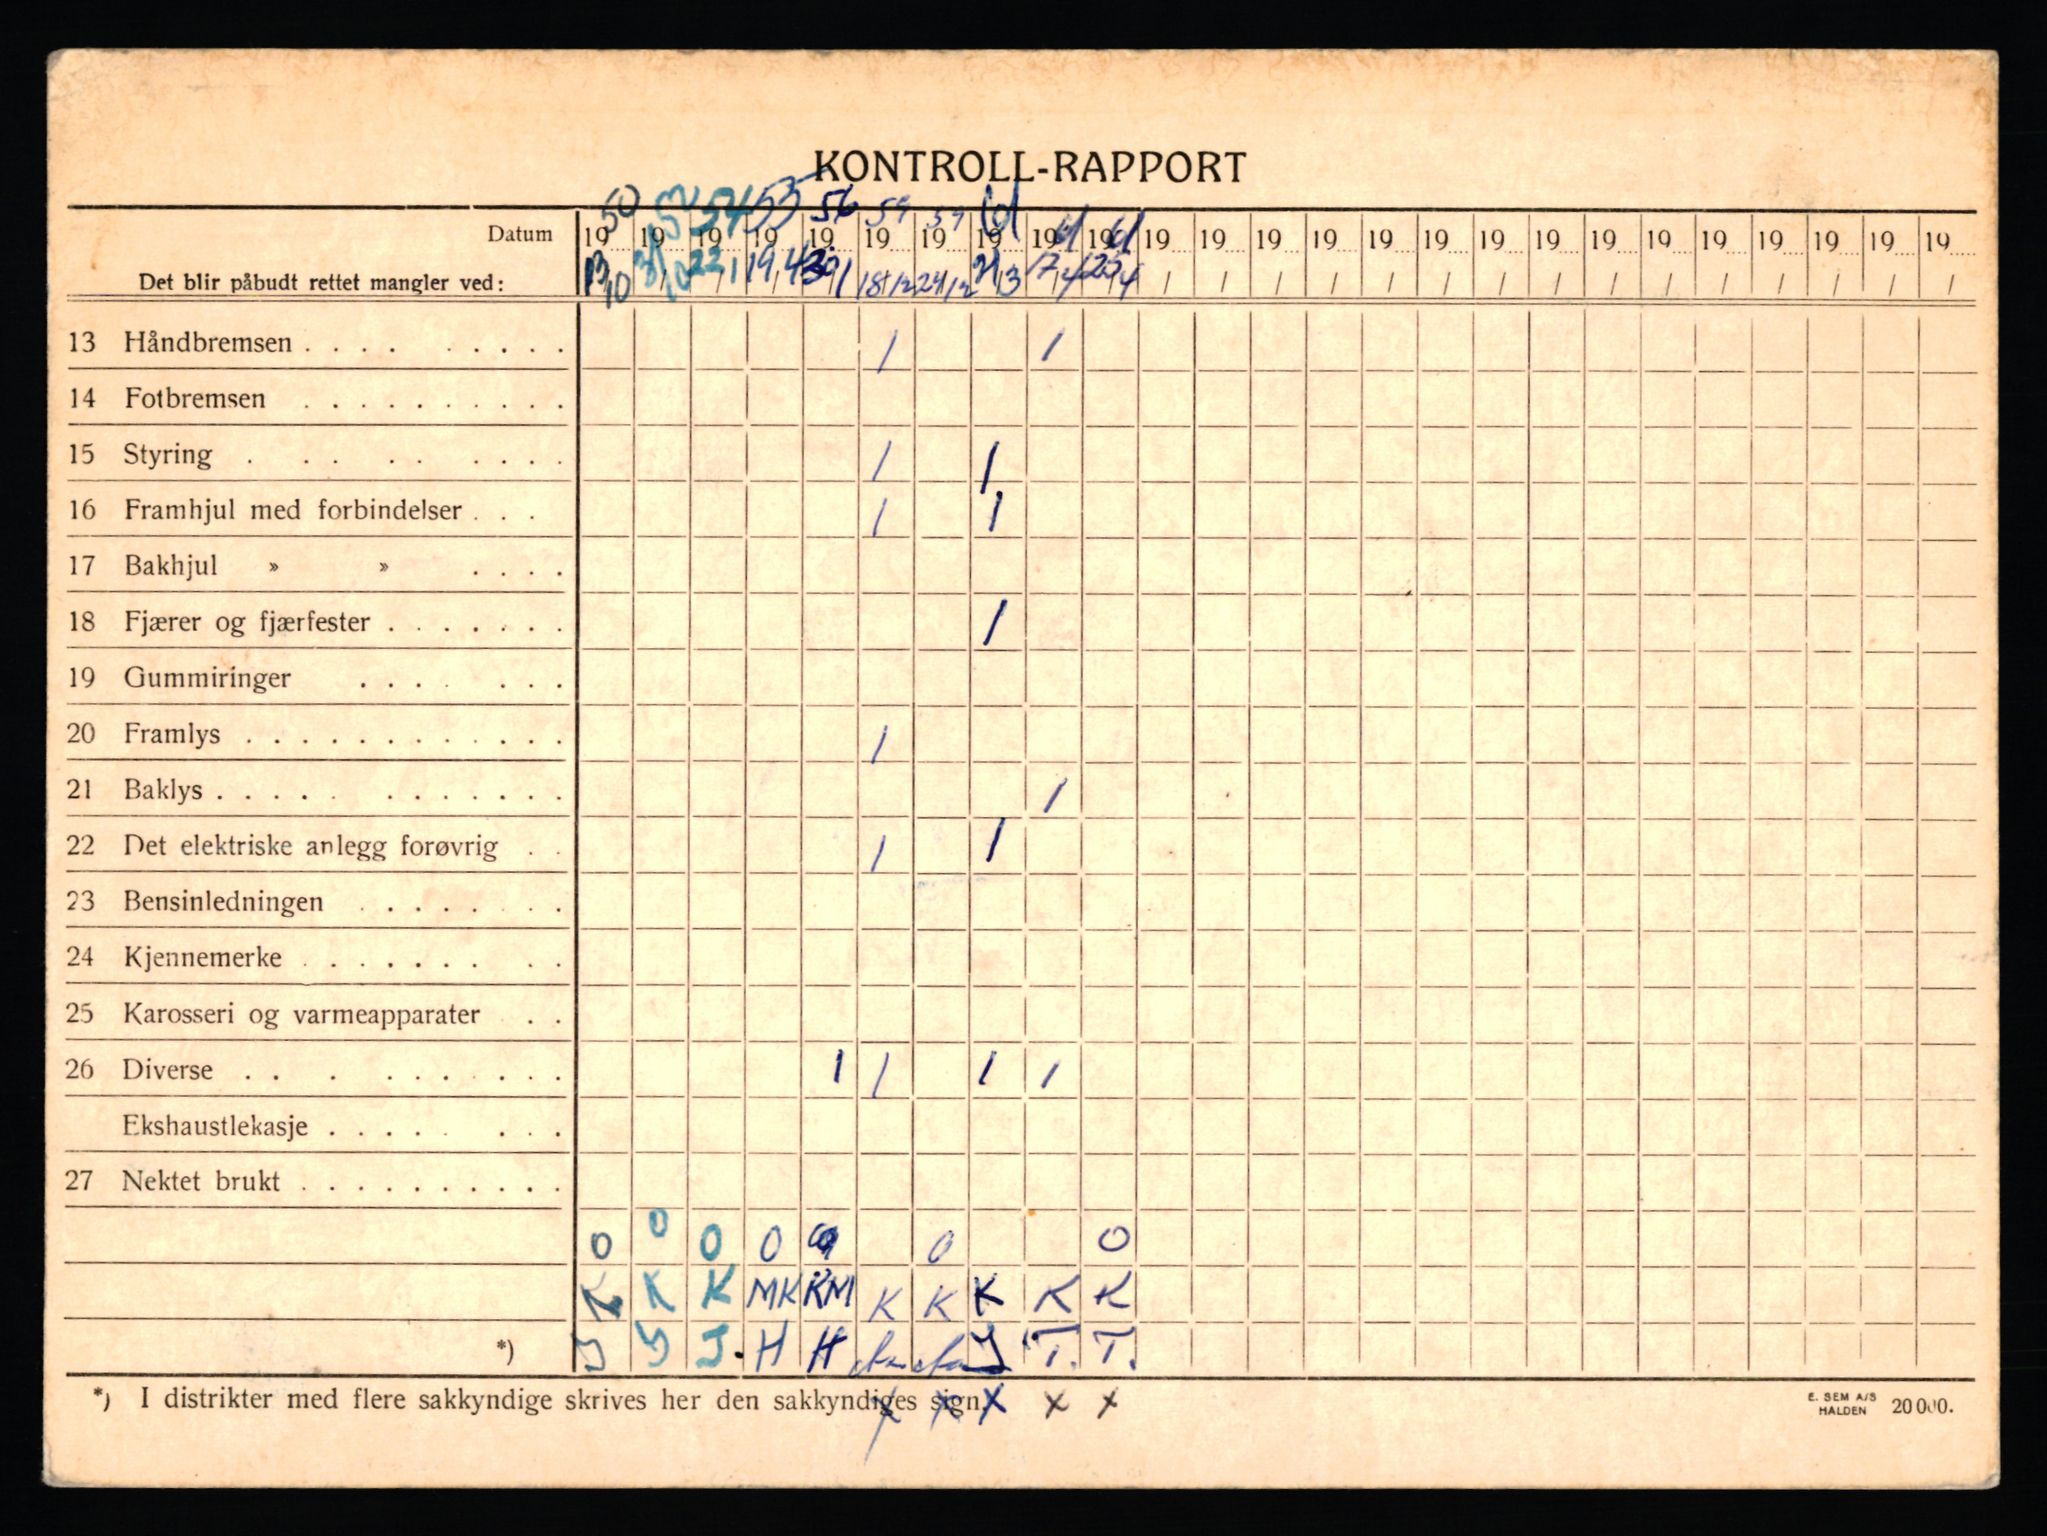 KONTROLL-RAPPORT
Datum 1950 1952 1954 1955 1956 1959 1959 1961 1961 1961 19 19 19 19 19 19 19 19 19 19 19 19 19 19 19
Det blir påbudt rettet mangler ved: 13/10 31/10 22/1 19/4 30/1 18/12 24/12 21/3 17/4 25/4 / / / / / / / / / / / / / / /
13 Håndbremsen . . . . . . . . . 1 1
14 Fotbremsen . . . . . . . . . .
15 Styring . . . . . . . . . 1 1
16 Framhjul med forbindelser . . . 1 1
17 Bakhjul » » . . . .
18 Fjærer og fjærfester . . . . . . . 1
19 Gummiringer . . . . . . .
20 Framlys . . . . . . . . . . . . 1
21 Baklys . . . . . . . . . . . . 1
22 Det elektriske anlegg forøvrig . . 1 1
23 Bensinledningen . . . . . . . .
24 Kjennemerke . . . . . . . . .
25 Karosseri og varmeapparater . .
26 Diverse . . . . . . . . . . 1 1 1 1
Ekshaustlekasje . . . . . . . .
27 Nektet brukt . . . . . . . . . .
0 0 0 0 0 0
K K K MK KM K K K K K
*) J J J. H H J T. T.
*) I distrikter med flere sakkyndige skrives her den sakkyndiges sign. x x x x x
E. SEM A/S
HALDEN 20000.